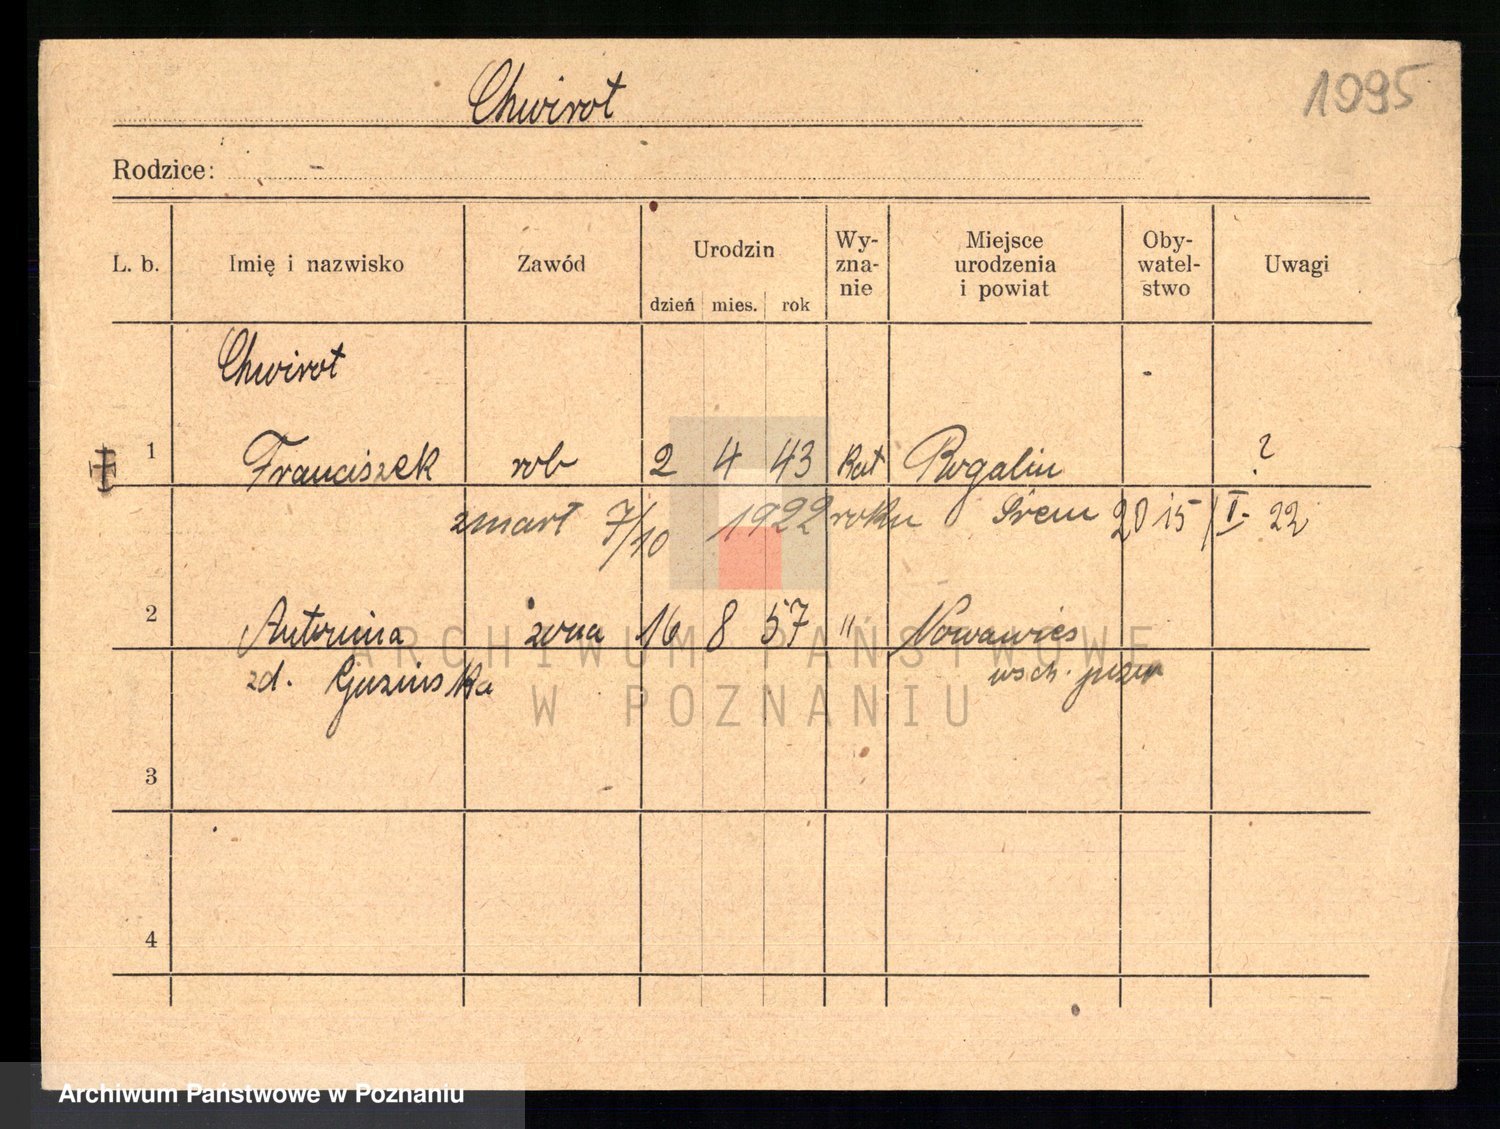 Chwirot
1095
Rodzice: -
L. b. Imię i nazwisko Zawód Urodzin dzień mies. rok Wy-zna-nie Miejsce urodzenia i powiat Oby-watel-stwo Uwagi
Chwirot
1 Franciszek rob 2 4 43 kat Rogalin ?
zmarł 7/10 1922 roku Śrem 20 15/I- 22
2 Antonina żona 16 8 57 " Nowawieś
zd. Guzińska wsch.
3
4
ARCHIWUM PAŃSTWOWE
W POZNANIU
Archiwum Państwowe w Poznaniu